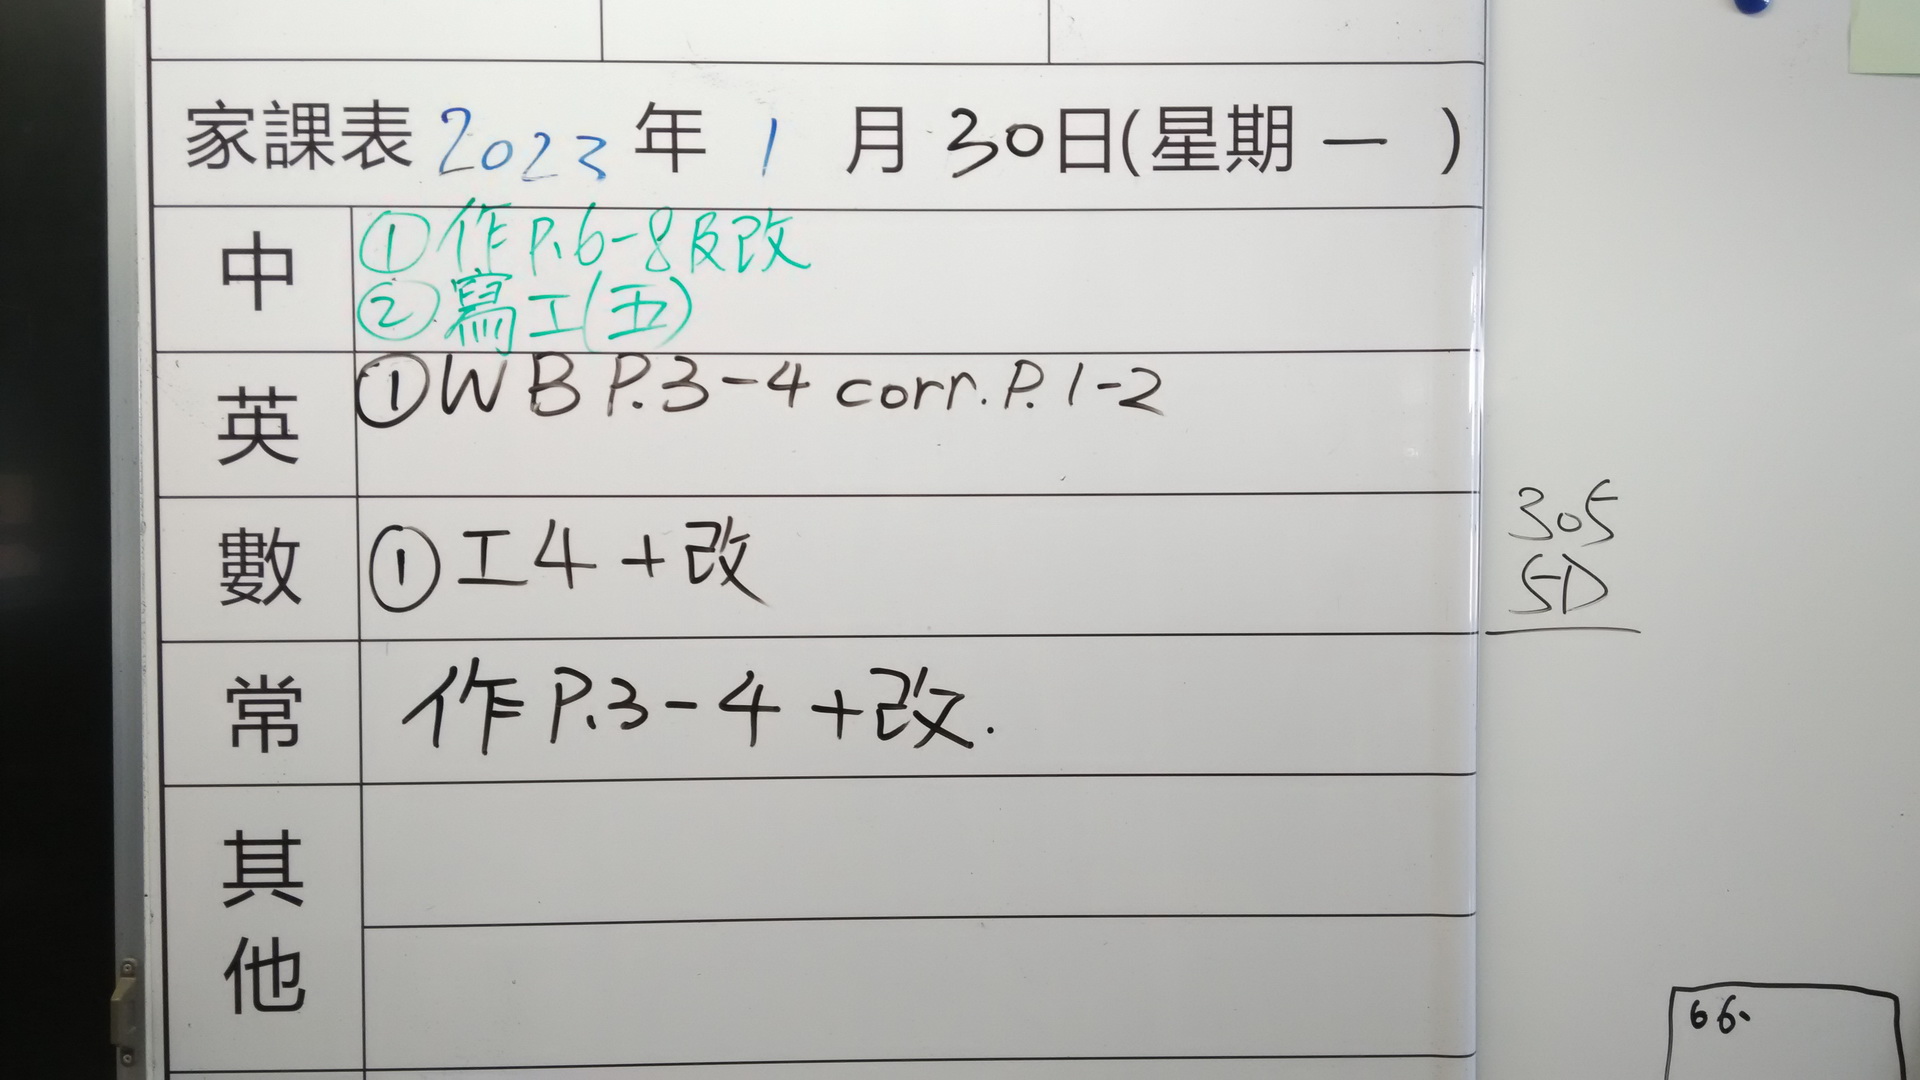 家課表 2023 年 1 月 30日(星期 一 )
中
①作P.6-8及改
②寫工(五)
英
①WB P.3-4 corr. P.1-2
數
①工4+改
常
作P.3-4+改.
其他
305
5D
66.